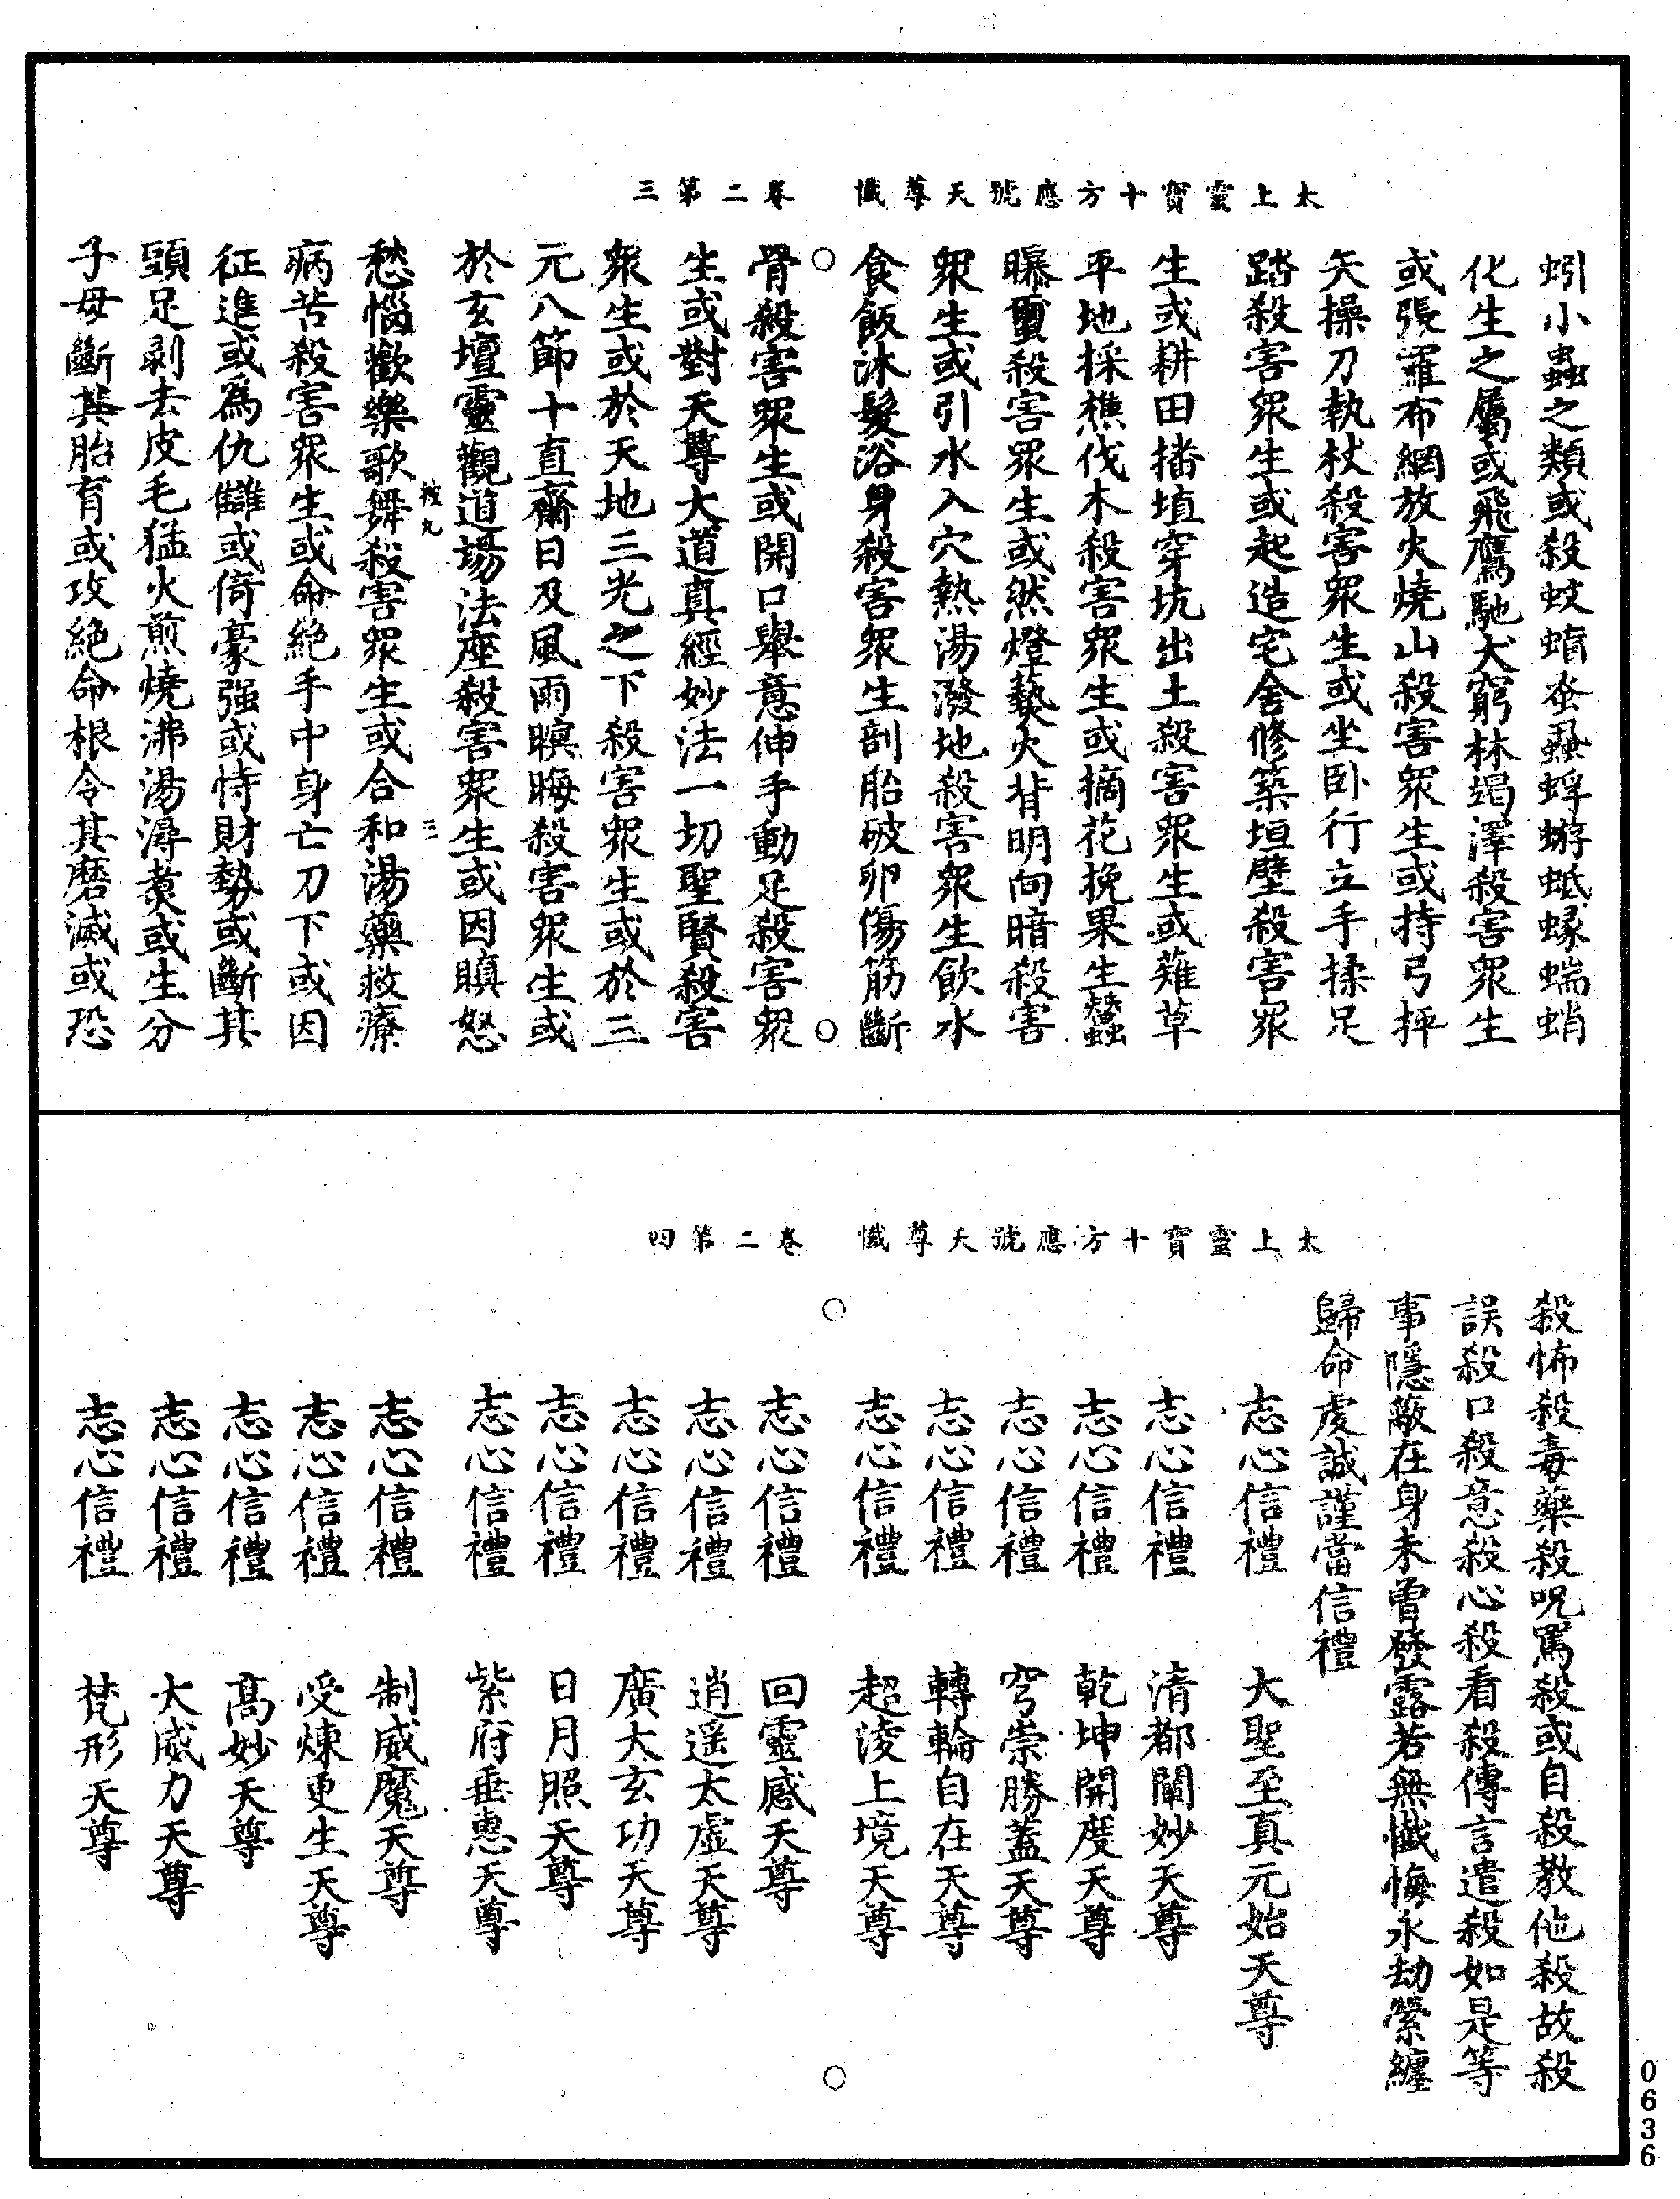 太上靈寶十方應號天尊懺　卷二第三
蚓小蟲之類或殺蚊蝐蚤蝨蜉蝣蚳蝝蝡蛸
化生之屬或飛鷹馳犬窮林竭澤殺害衆生
或張羅布網放火燒山殺害衆生或持弓抨
矢操刀執杖殺害衆生或坐卧行立手揉足
踏殺害衆生或起造宅舍修築垣壁殺害衆
生或耕田播埴穿坑出土殺害衆生或薙草
平地採樵伐木殺害衆生或摘花挽果生蠶
曝蠒殺害衆生或然燈爇火背明向暗殺害
衆生或引水入穴熱湯潑地殺害衆生飲水
食飯沐髮浴身殺害衆生剖胎破卵傷筋斷
骨殺害衆生或開口舉意伸手動足殺害衆
生或對天尊大道真經妙法一切聖賢殺害
衆生或於天地三光之下殺害衆生或於三
元八節十直齋日及風雨暝晦殺害衆生或
於玄壇靈觀道場法座殺害衆生或因瞋怒
愁惱歡樂歌舞殺害衆生或合和湯藥救療
病苦殺害衆生或命絶手中身亡刀下或因
征進或爲仇讎或倚豪强或恃財勢或斷其
頭足剥去皮毛猛火煎燒沸湯潯煑或生分
子母斷其胎育或攻絶命根令其磨滅或恐
太上靈寶十方應號天尊懺　卷二第四
殺怖殺毒藥殺呪罵殺或自殺教他殺故殺
誤殺口殺意殺心殺看殺傳言遣殺如是等
事隱蔽在身未曾發露若無懺悔永劫縈纏
歸命虔誠謹當信禮
志心信禮　大聖至真元始天尊
志心信禮　清都闡妙天尊
志心信禮　乾坤開度天尊
志心信禮　穹崇勝蓋天尊
志心信禮　轉輪自在天尊
志心信禮　超淩上境天尊
志心信禮　回靈感天尊
志心信禮　逍遥太虚天尊
志心信禮　廣大玄功天尊
志心信禮　日月照天尊
志心信禮　紫府垂惠天尊
志心信禮　制威魔天尊
志心信禮　受煉更生天尊
志心信禮　髙妙天尊
志心信禮　大威力天尊
志心信禮　梵形天尊
0636